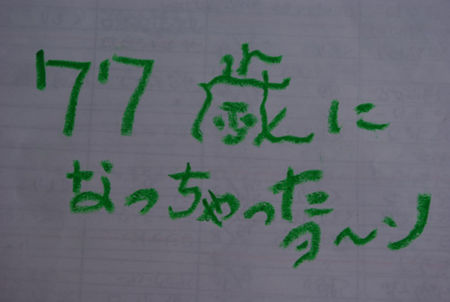 77歳に
なっちゃった
ヨ～ン